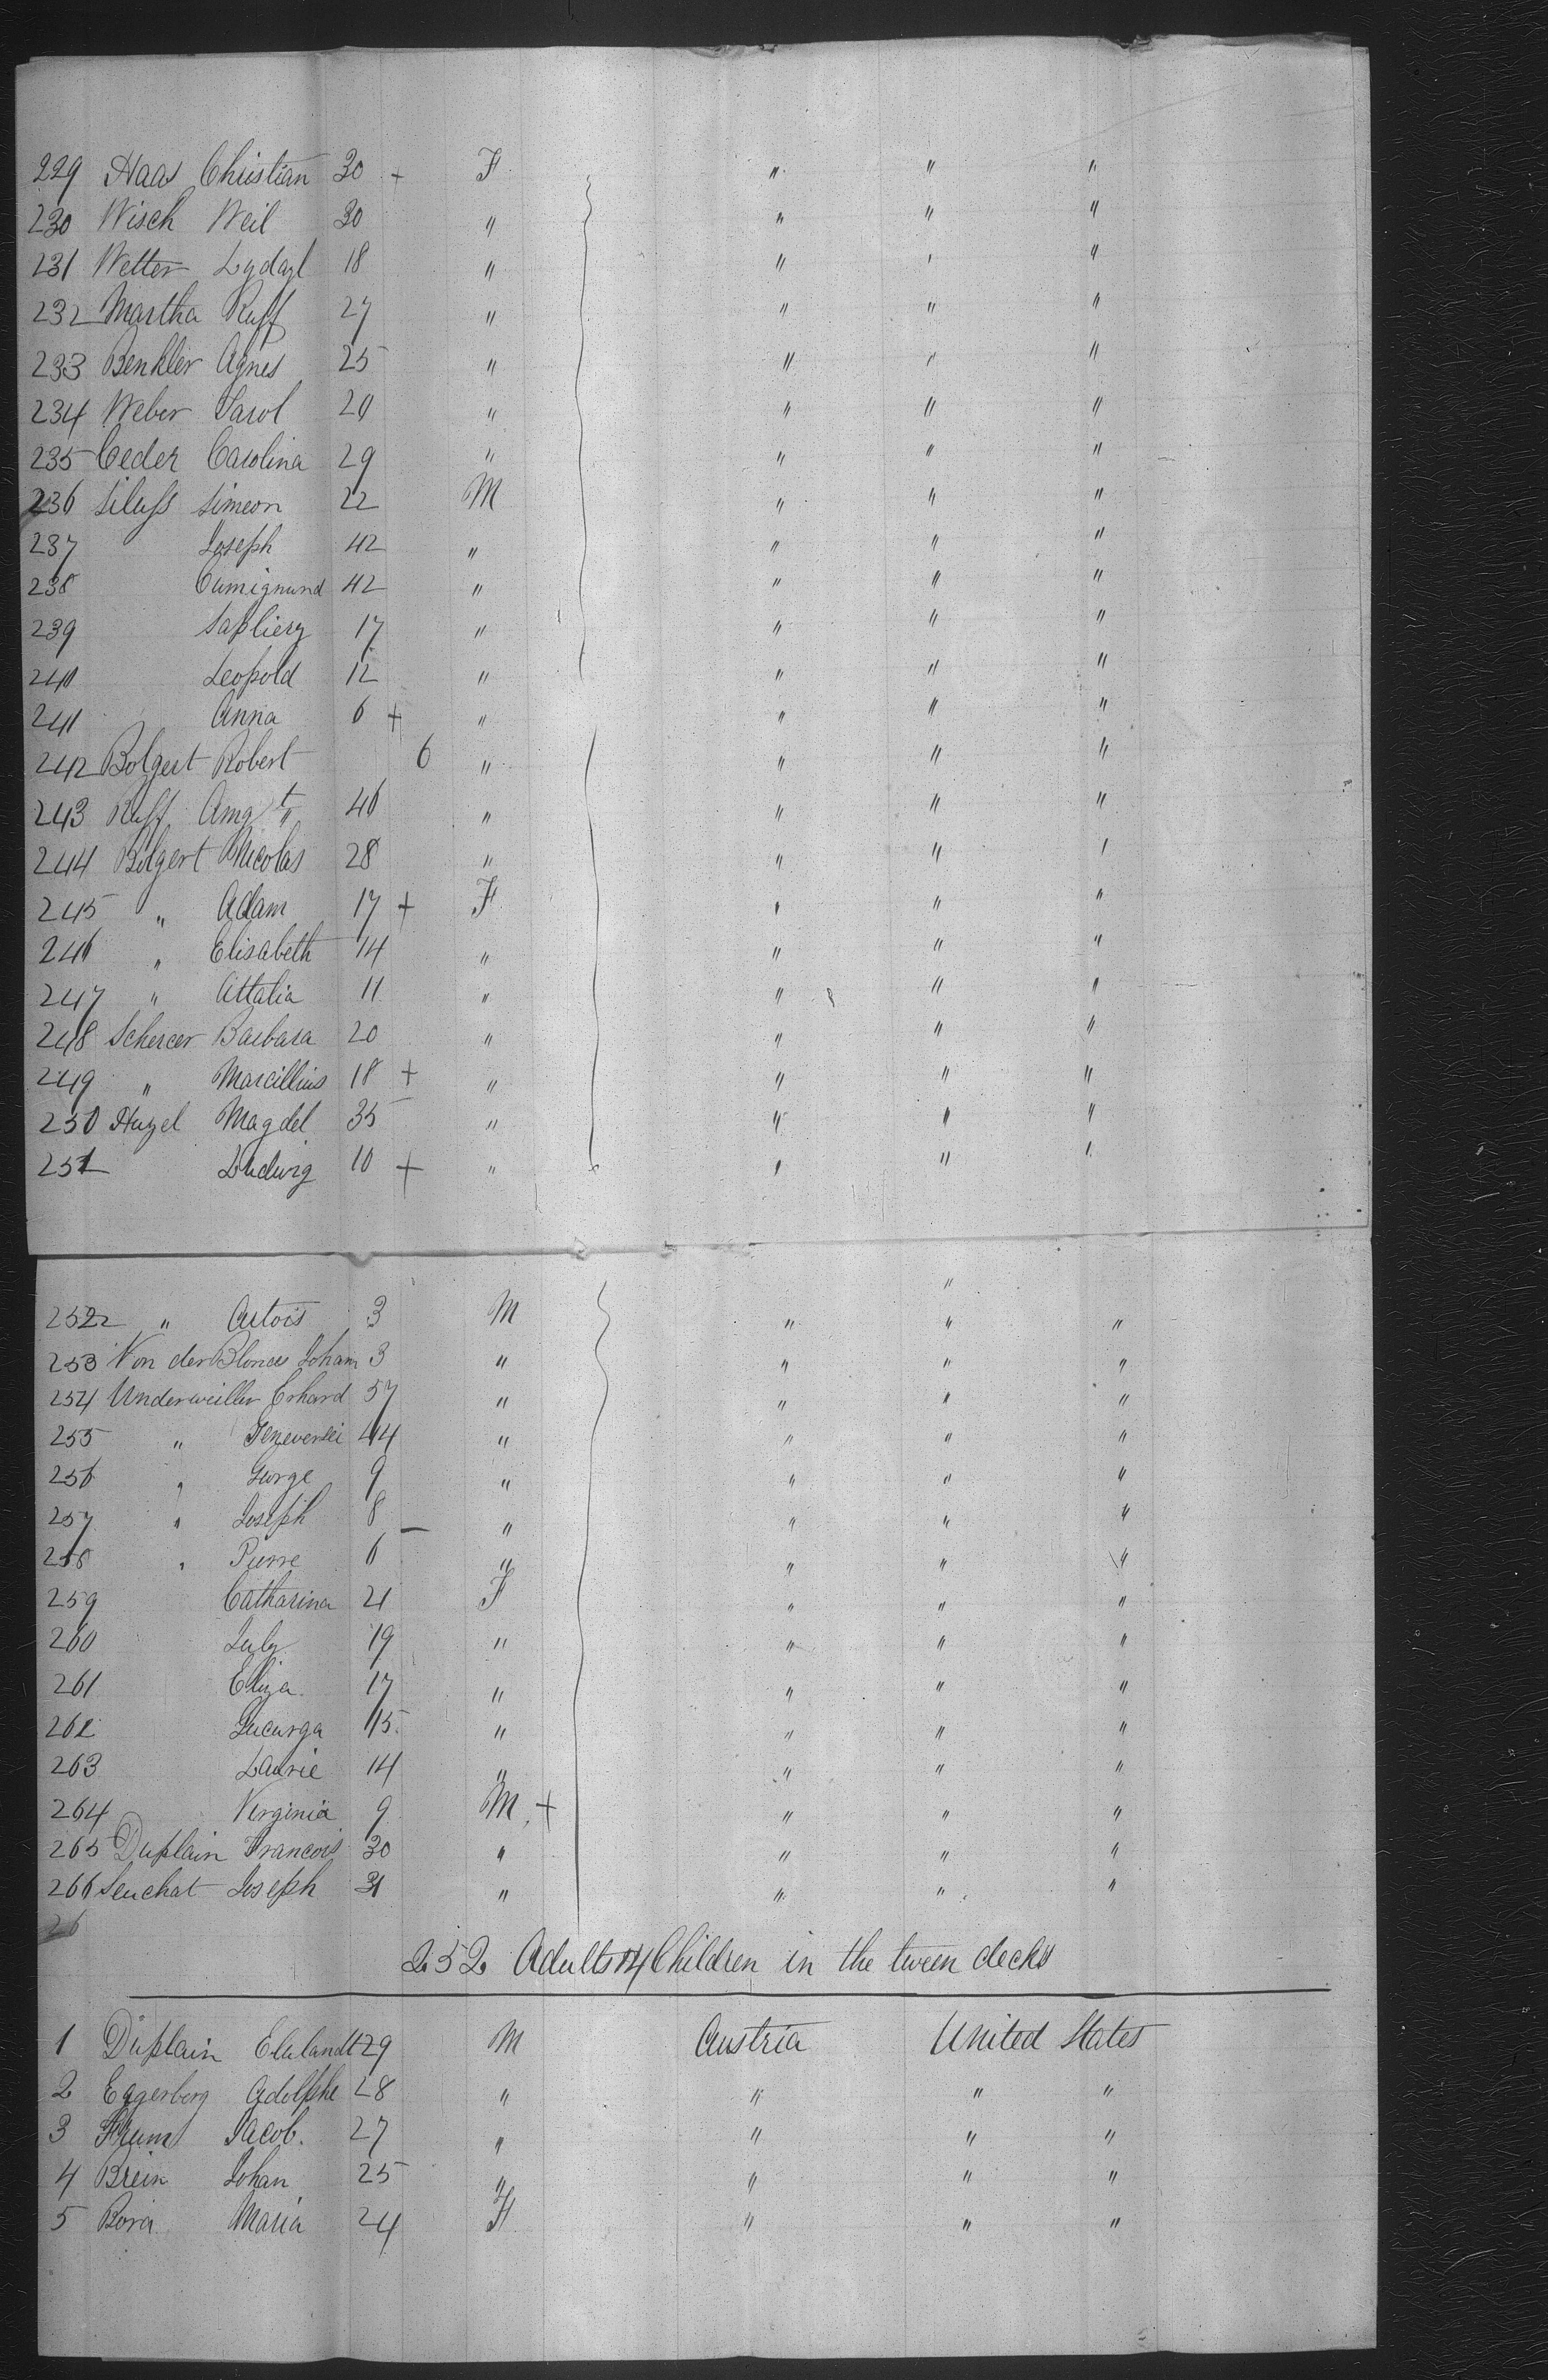 229 Haas Christian 30 + F " " "
230 Wisch Weil 30 " " " "
231 Wetter Lydayl 18 " " " "
232 Martha Ruff 27 " " " "
233 Benkler Agnes 25 " " " "
234 Weber Sarol 20 " " " "
235 Ceder Carolina 29 " " " "
236 Siluss Simeon 22 M " " "
237 Joseph 42 " " " "
238 Cumignund 42 " " " "
239 Sapliery 17 " " " "
240 Leopold 12 " " " "
241 Anna 6 + " " " "
242 Bolgert Robert 6 " " " "
243 Ruff 46 " " " "
244 Bolgert Nicolas 28 " " " "
245 " Adam 17 + F " " "
246 " Elisabeth 14 " " " "
247 " Attalia 11 " " " "
248 Schercer Barbara 20 " " " "
249 " Marcillius 18 + " " " "
250 Hazel Magdel 35 " " " "
251 Ludwig 10 + " " " "
252 " Artois 3 M " " "
253 Von der Blonces Joham 3 " " " "
254 Underweiller Erhard 57 " " " "
255 " 44 " " " "
256 " George 9 " " " "
257 " Joseph 8 " " " "
258 " Pierre 6 " " " "
259 Catharina 21 F " " "
260 July 19 " " " "
261 Eliza 17 " " " "
262 Lucurga 15 " " " "
263 Laurie 14 " " " "
264 Virginia 9 M + " " "
265 Duplain Francois 30 " " " "
266 Senchat Joseph 31 " " " "
26
252 Adults 14 Children in the tween decks
1 Duplain Elulandt 29 M Austria United States
2 Eggerberg Adolphe 28 " " " "
3 Jacob. 27 " " " "
4 Brein Johan 25 " " " "
5 Bora Maria 24 F " " "